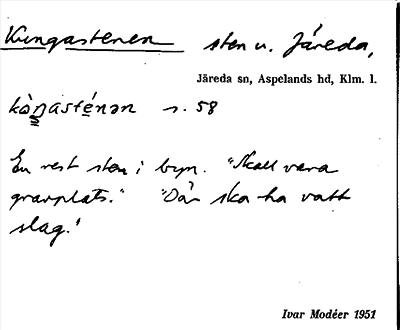 Kungastenen sten u. Järeda,
Järeda sn, Aspelands hd, Klm. l.
kòŋasténən s. 58
En rest sten i byn. "Skall vara
gravplats." "Där ska ha vatt
slag."
Ivar Modéer 1951